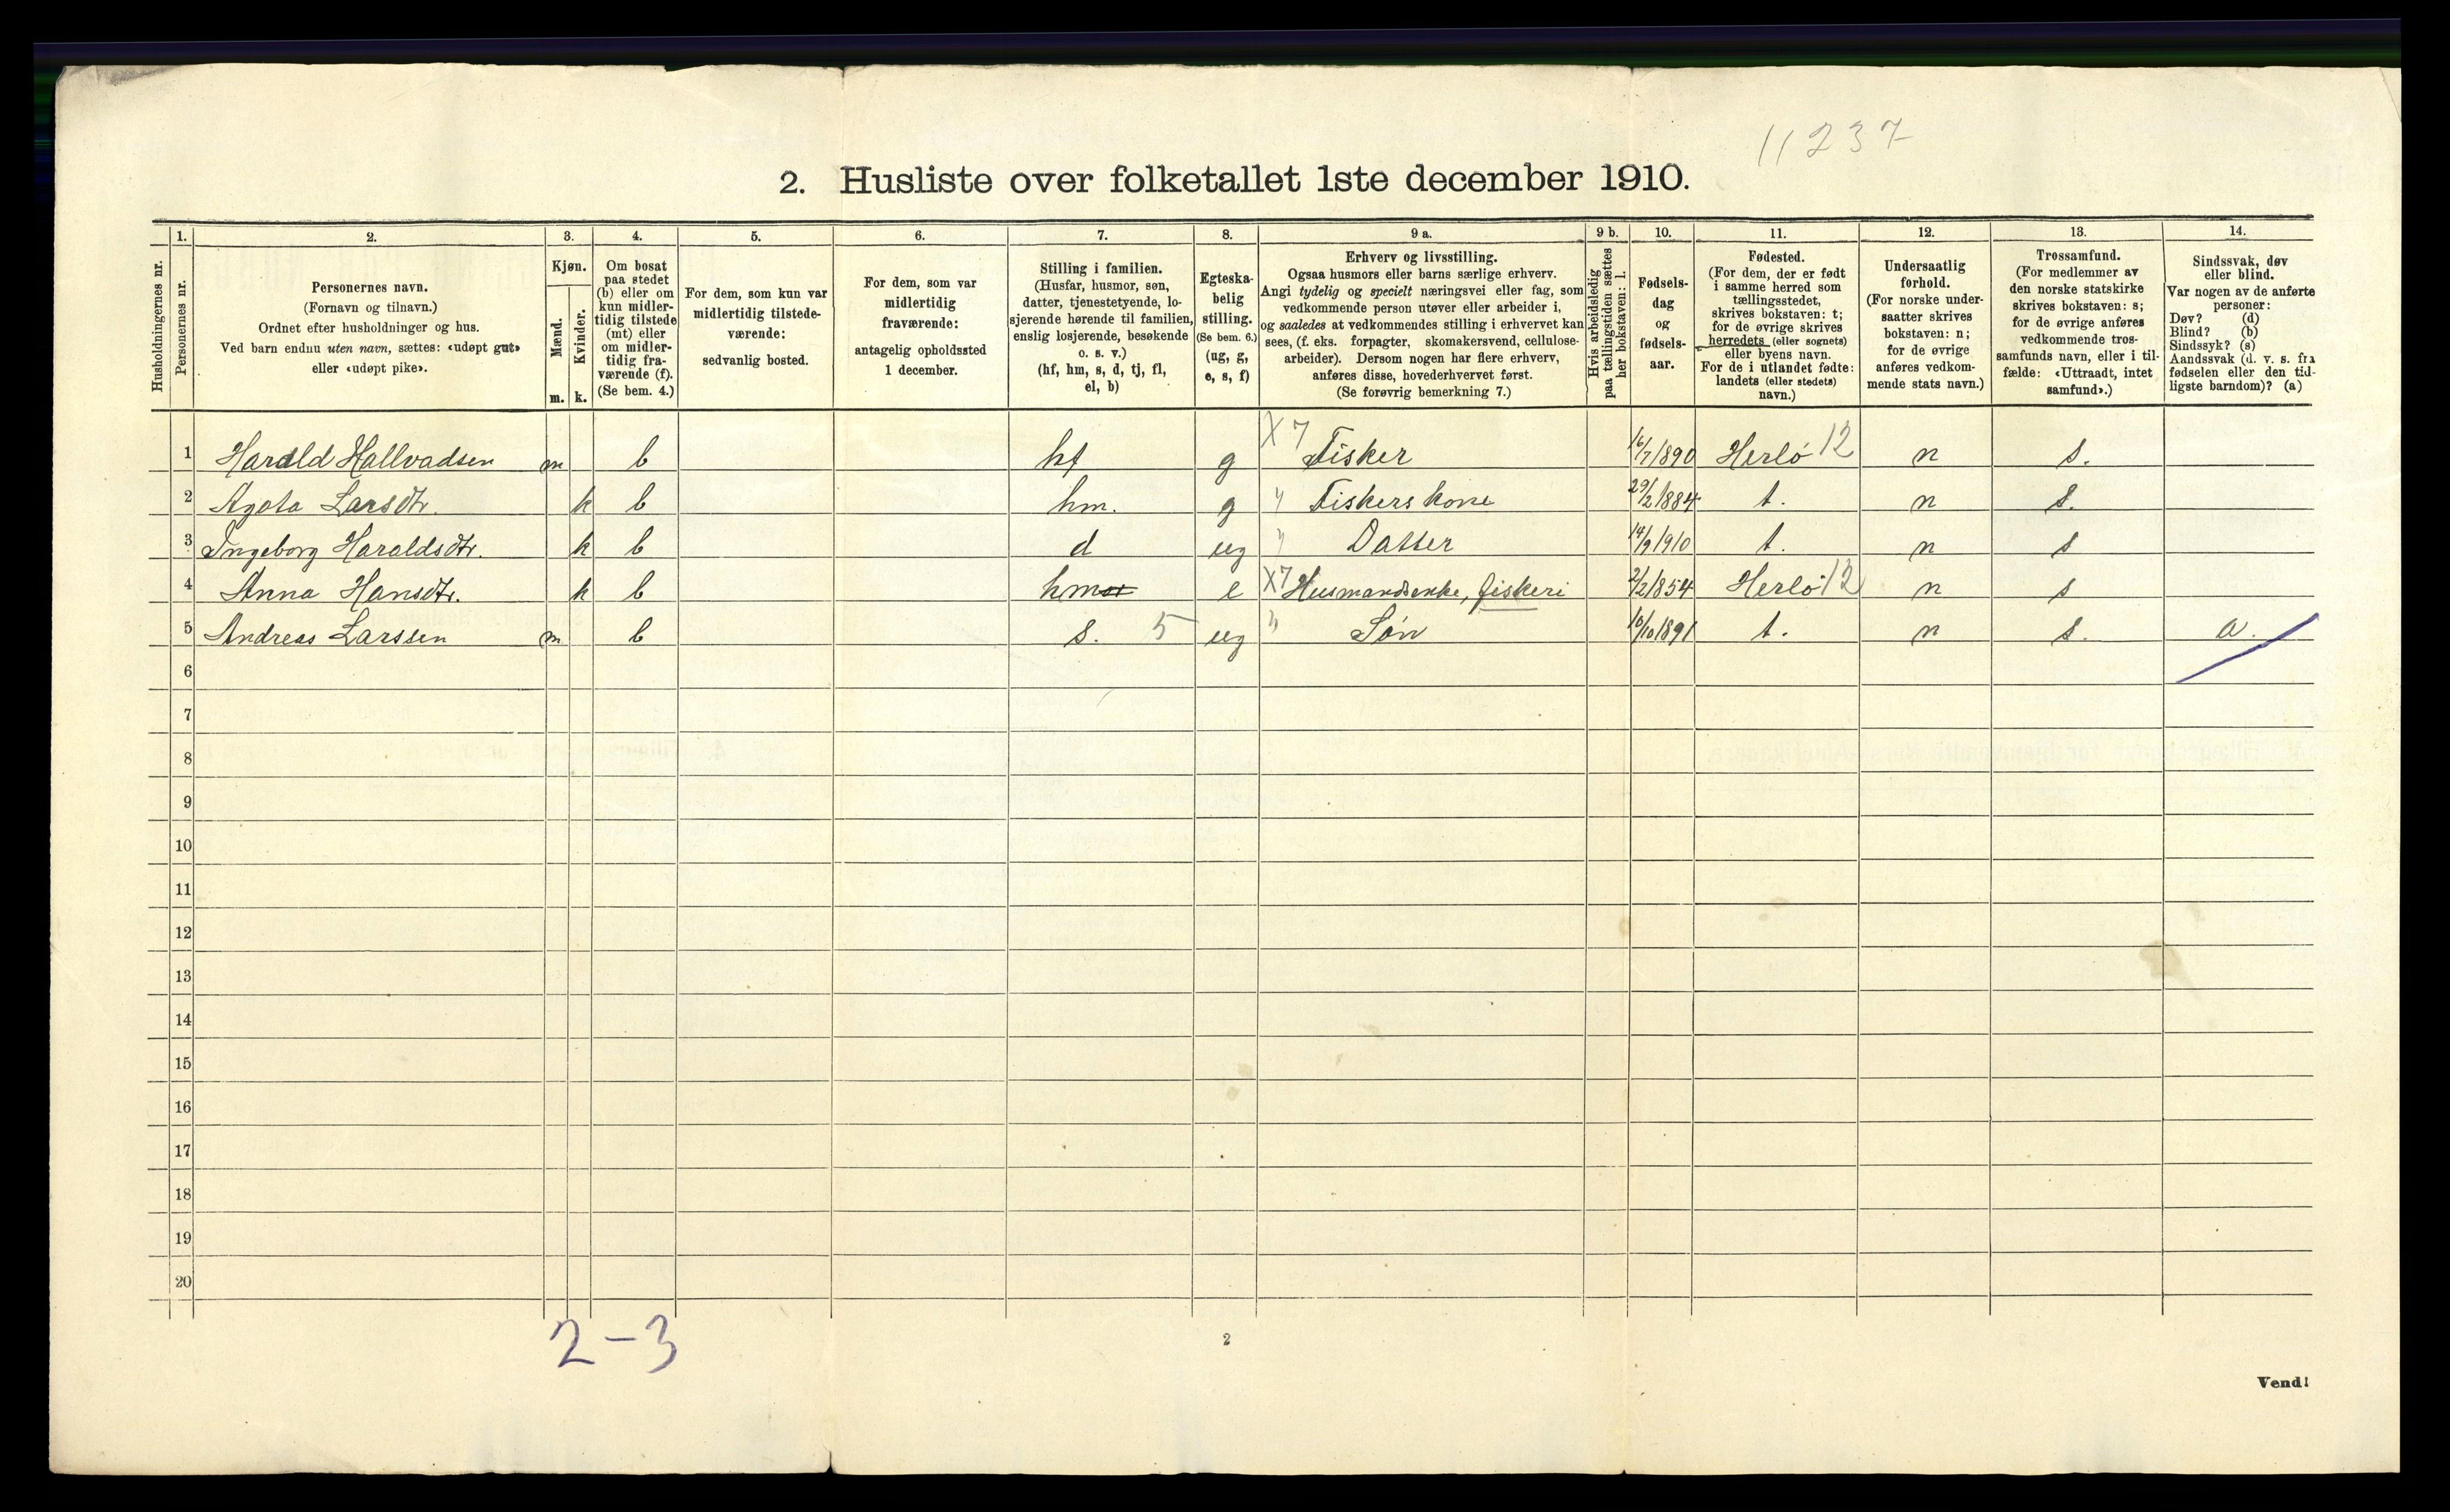 11237
2. Husliste over folketallet 1ste december 1910.
Husholdningernes nr.
1. 2. 3. 4. 5. 6. 7. 8. 9 a. 9 b. 10. 11. 12. 13. 14.
Personernes nr.
Personernes navn.
(Fornavn og tilnavn.)
Ordnet efter husholdninger og hus.
Ved barn endnu uten navn, sættes: «udøpt gut»
eller «udøpt pike».
Kjøn.
Mænd.
Kvinder.
m. k.
Om bosat
paa stedet
(b) eller om
kun midler-
tidig tilstede
(mt) eller
om midler-
tidig fra-
værende (f).
(Se bem. 4.)
For dem, som kun var
midlertidig tilstede-
værende:
sedvanlig bosted.
For dem, som var
midlertidig
fraværende:
antagelig opholdssted
1 december.
Stilling i familien.
(Husfar, husmor, søn,
datter, tjenestetyende, lo-
sjerende hørende til familien,
enslig losjerende, besøkende
o. s. v.)
(hf, hm, s, d, tj, fl,
el, b)
Egteska-
belig
stilling.
(Se bem. 6.)
(ug, g,
e, s, f)
Erhverv og livsstilling.
Ogsaa husmors eller barns særlige erhverv.
Angi tydelig og specielt næringsvei eller fag, som
vedkommende person utøver eller arbeider i,
og saaledes at vedkommendes stilling i erhvervet kan
sees, (f. eks. forpagter, skomakersvend, cellulose-
arbeider). Dersom nogen har flere erhverv,
anføres disse, hovederhvervet først.
(Se forøvrig bemerkning 7.)
Hvis arbeidsledig
paa tællingstiden sættes
her bokstaven: l.
Fødsels-
dag
og
fødsels-
aar.
Fødested.
(For dem, der er født
i samme herred som
tællingsstedet,
skrives bokstaven: t;
for de øvrige skrives
herredets (eller sognets)
eller byens navn.
For de i utlandet fødte:
landets (eller stedets)
navn.)
Undersaatlig
forhold.
(For norske under-
saatter skrives
bokstaven: n;
for de øvrige
anføres vedkom-
mende stats navn.)
Trossamfund.
(For medlemmer av
den norske statskirke
skrives bokstaven: s;
for de øvrige anføres
vedkommende tros-
samfunds navn, eller i til-
fælde: «Uttraadt, intet
samfund».)
Sindssvak, døv
eller blind.
Var nogen av de anførte
personer:
Døv? (d)
Blind? (b)
Sindssyk? (s)
Aandssvak (d. v. s. fra
fødselen eller den tid-
ligste barndom)? (a)
1 Harald Hallvadsen m b hf g X7 Fisker 16/7 1890 Herlö 12 n s.
2 Agota Larsdtr. k b hm. g " Fiskers kone 29/2 1884 t. n s.
3 Ingeborg Haraldsdtr. k b d ug " Datter 14/9 1910 t. n s
4 Anna Hansdtr. k b hm e X7 Husmandsenke, fiskeri 2/2 1854 Herlö 12 n s
5 Andreas Larssen m b s. 5 ug " Sön 10/10 1891 t. n s. a.
6
7
8
9
10
11
12
13
14
15
16
17
18
19
20
2-3
2
Vend!